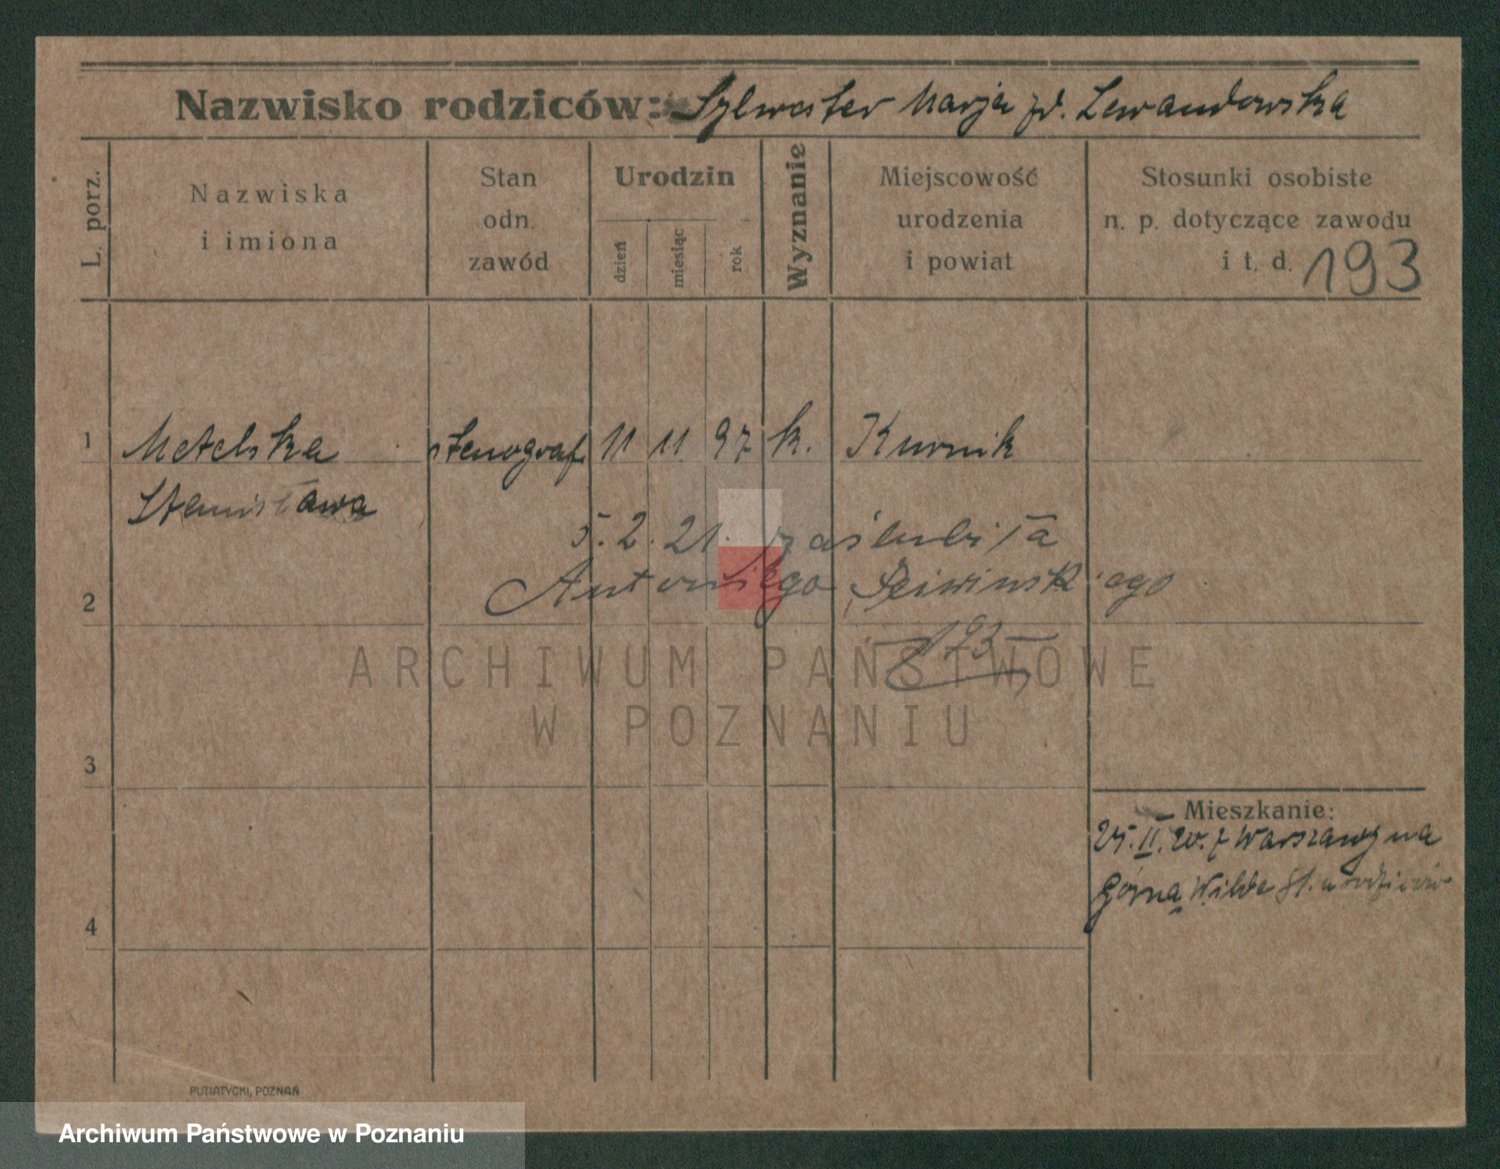 Nazwisko rodziców: Sylwester Marja zd. Lewandowska
L. porz.
Nazwiska
i imiona
Stan
odn.
zawód
Urodzin
dzień
miesiąc
rok
Wyznanie
Miejscowość
urodzenia
i powiat
Stosunki osobiste
n. p. dotyczące zawodu
i t. d. 193
1 Metelska stenograf. 11 11 97 k. Kurnik
Stanisława
5. 2. 21. zaślubiła
2 Antoniego
193
ARCHIWUM PAŃSTWOWE
W POZNANIU
3
Mieszkanie:
25. II. 20. z Warszawy na
Górna Wilda u rodziców
4
PUTIATYCKI, POZNAŃ
Archiwum Państwowe w Poznaniu